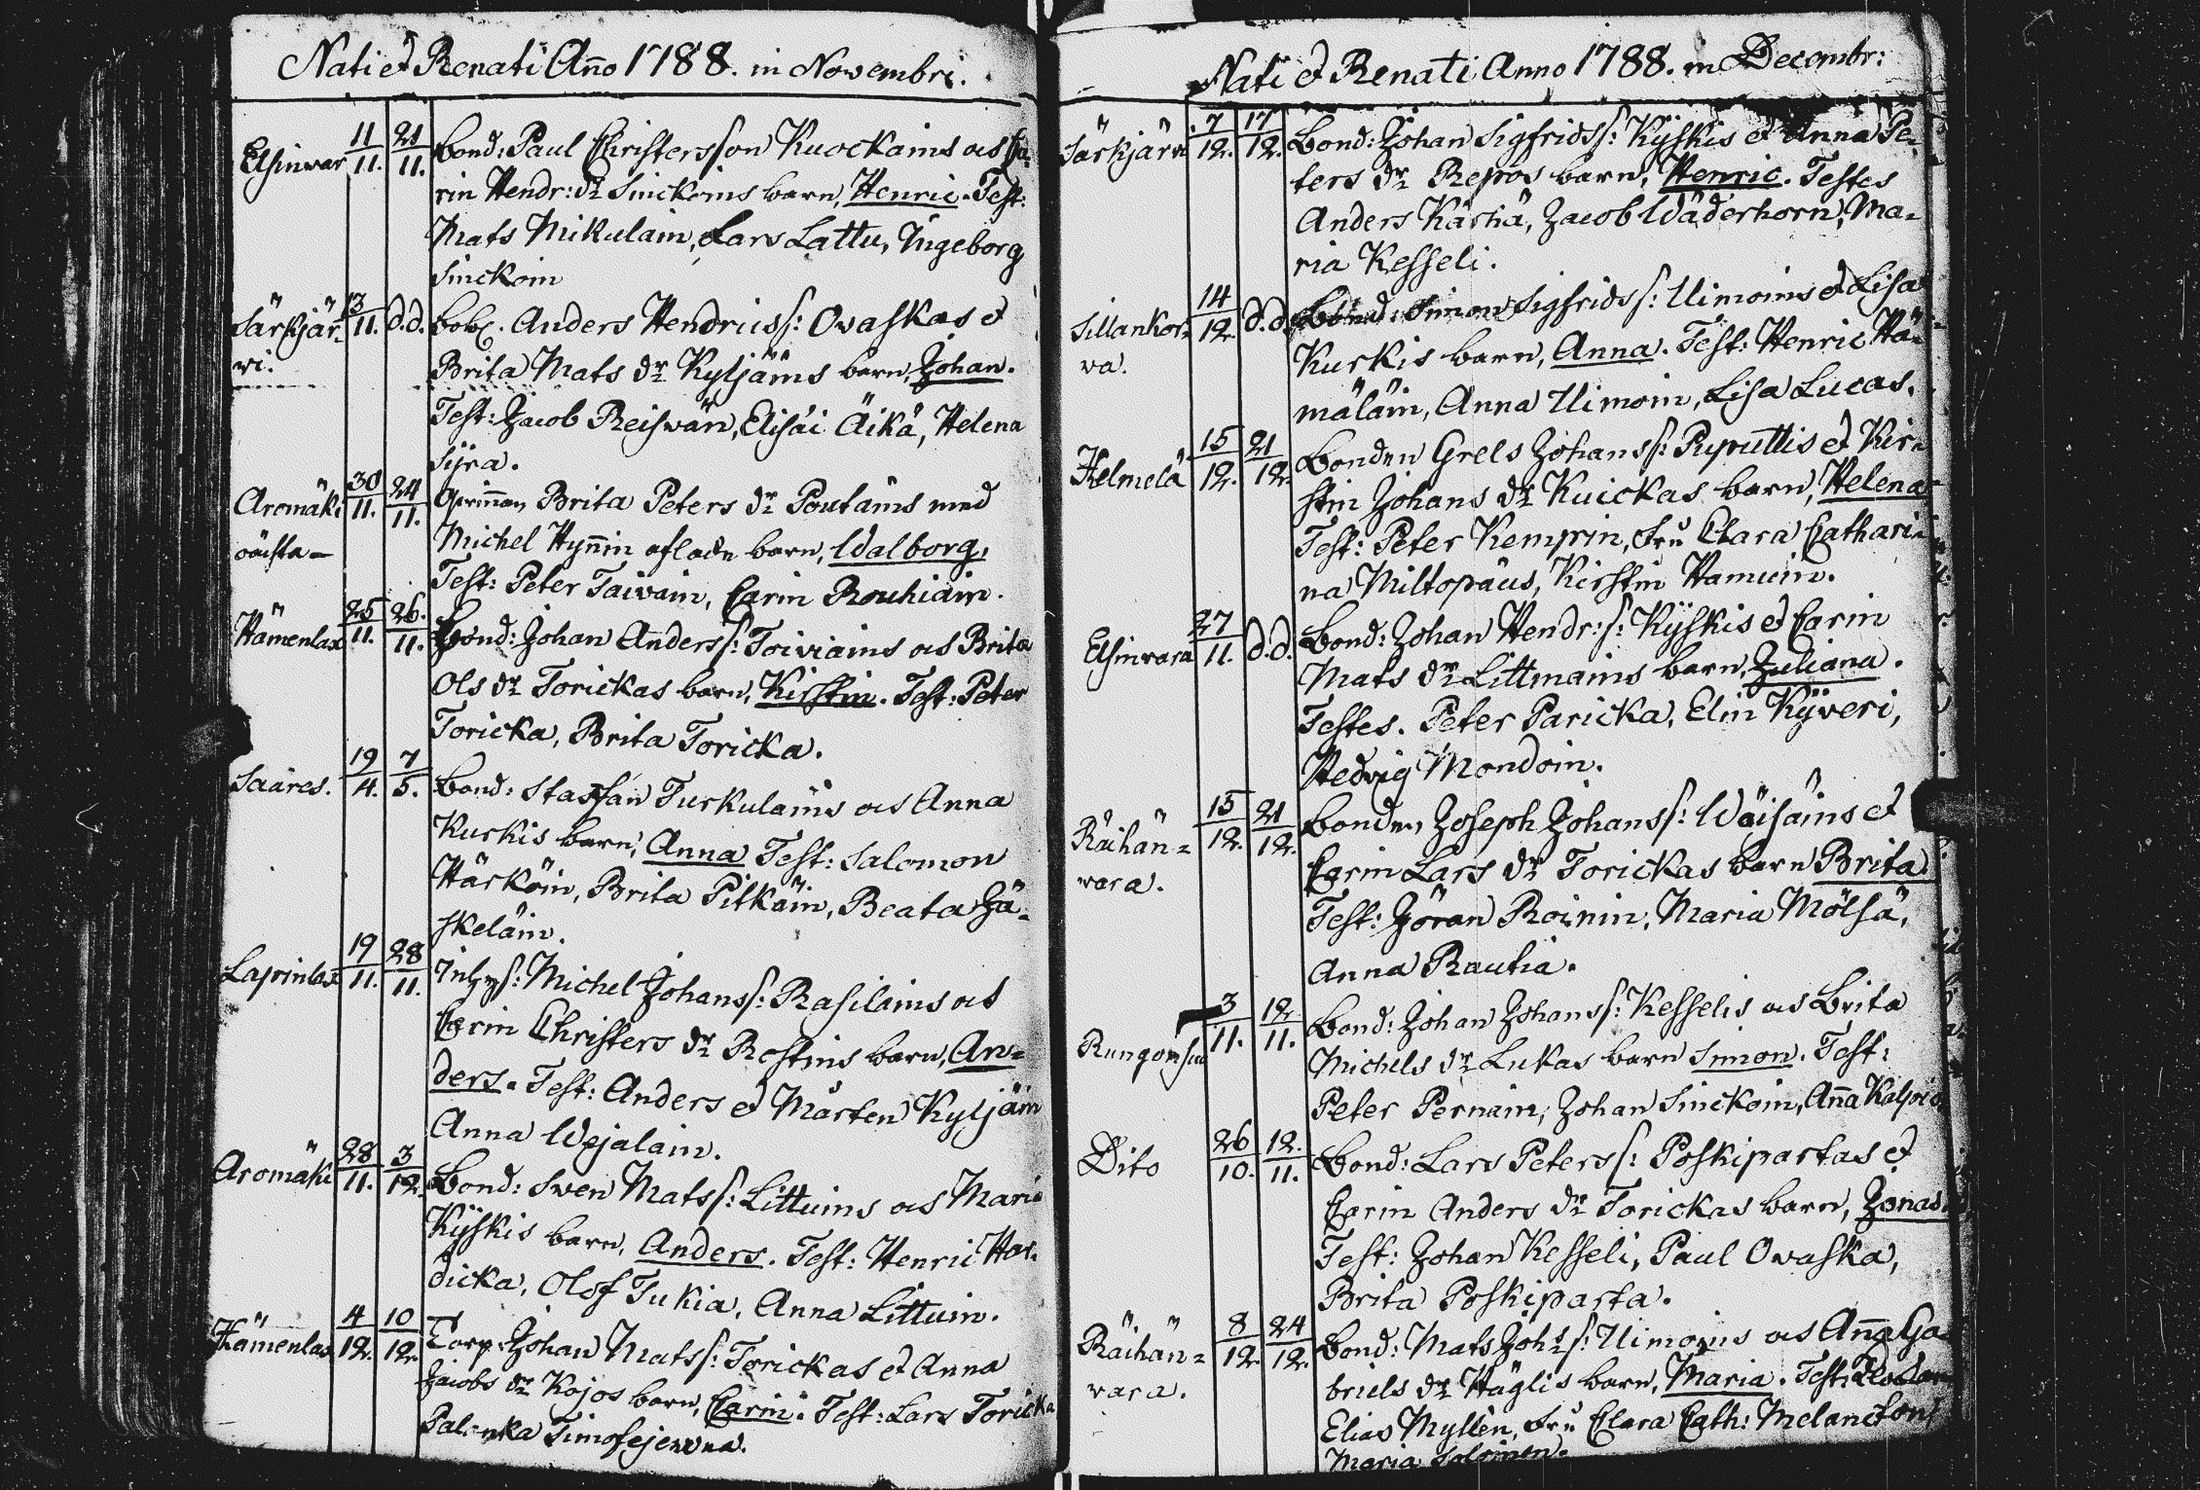 Nati et Renati Año 1788. in Novembri.
Elsinwar 11/11. 21/11. Bond: Paul Christersson Kuockains och Ca-
rin Hendr: dr Sinckoins barn, Henric. Test:
Mats Mikulain, Lars Lattu, Ingeborg
Sinckoin
Särkjär- 13/11. d.d. Bob. Anders Hendricss: Ovaskas et
vi. Brita Mats dr Kyljäins barn, Johan.
Test: Jacob Reiswän, Elisai Äikä, Helena
Sijra.
Aromäki 30/11. 24/11. Brita Peters dr Poutains med
Michel Hyñin aflade barn, Walborg,
Test: Peter Taivain, Carin Rouhiain.
Hämenlax 25/11. 26./11. Bond: Johan Anderss: Toiviains och Brita
Ols dr Torickas barn, Kirstin. Test: Peter
Toricka, Brita Toricka.
Saares. 19/4. 7/5. Bond: Staffan Turkulains och Anna
Kurkis barn, Anna Test: Salomon
Härköin, Brita Pitkäin, Beata Jä-
skeläin.
Lapinlax 19/11. 28/11. Inhys: Michel Johanss: Rasilains och
Carin Christers dr Rostins barn, An-
ders. Test: Anders et Mårten Kyljäin
Anna Wejalain.
Aromäki 28/11. 3/12. Bond: Swen Matss: Littuins och Maria
Kÿskis barn, Anders. Test: Henric Har-
dicka, Olof Tukia, Anna Littuin.
Hämenlax 4/12. 10/12. Torp: Johan Matss: Torickas et Anna
Jacobs dr Kojos barn, Carin. Test: Lars Toricka
Timofejewna.
Nati et Renati Anno 1788. in Decembr:
Särkjärvi 7/12. 17/12. Bond: Johan Sigfridss: Kÿskis et Anna Pe-
ters dr Repos barn, Henric. Testes
Anders Kärnä, Jacob Wäderhorn, Ma-
ria Kesseli.
Sillankor- 14/12. d.d. Bond: Simon Sigfridss: Uimoins et Lisa
va. Kurkis barn, Anna. Test: Henric Hä-
mäläin, Anna Uimoin, Lisa Lucas.
Helmelä 15/12. 21/12. Bonden Grels Johanss: Pyputtis et Kir-
stin Johans dr Kuickas barn, Helena
Test: Peter Kemppin, Fru Clara Cathari-
na Miltopäus, Kirstin Hamuin.
Elsinvara 27/11. d.d. Bond: Johan Hendr: s: Kÿskis et Carin
Mats dr Littmains barn, Juliana.
Testes. Peter Paricka, Elin Kÿveri,
Hedvig Mondoin.
Räihän= 15/12. 21/12. Bonden Joseph Johanss: Wäisäins et
vara. Carin Lars dr Torickas barn Brita.
Test: Jöran Roinin, Maria Mölsä,
Anna Rautia.
3/11. 12./11. Bond: Johan Johanss: Kesselis och Brita
Michels dr Lukas barn Simon. Test:
Peter Pernain, Johan Sinckoin, Aña
Dito 26/10. 12./11. Bond: Lars Peterss: Poskipartas et
Carin Anders dr Torickas barn, Jonas
Test: Johan Kesseli, Paul Owaska,
Brita Poskiparta.
Räihän= 8/12. 24/12. Bond: Mats Johs s: Uimoins och Aña Ga-
vara. briels dr Häglis barn, Maria. Test:
Elias Myllén, Fru Clara Cath: Melancton
Maria Saloinen.